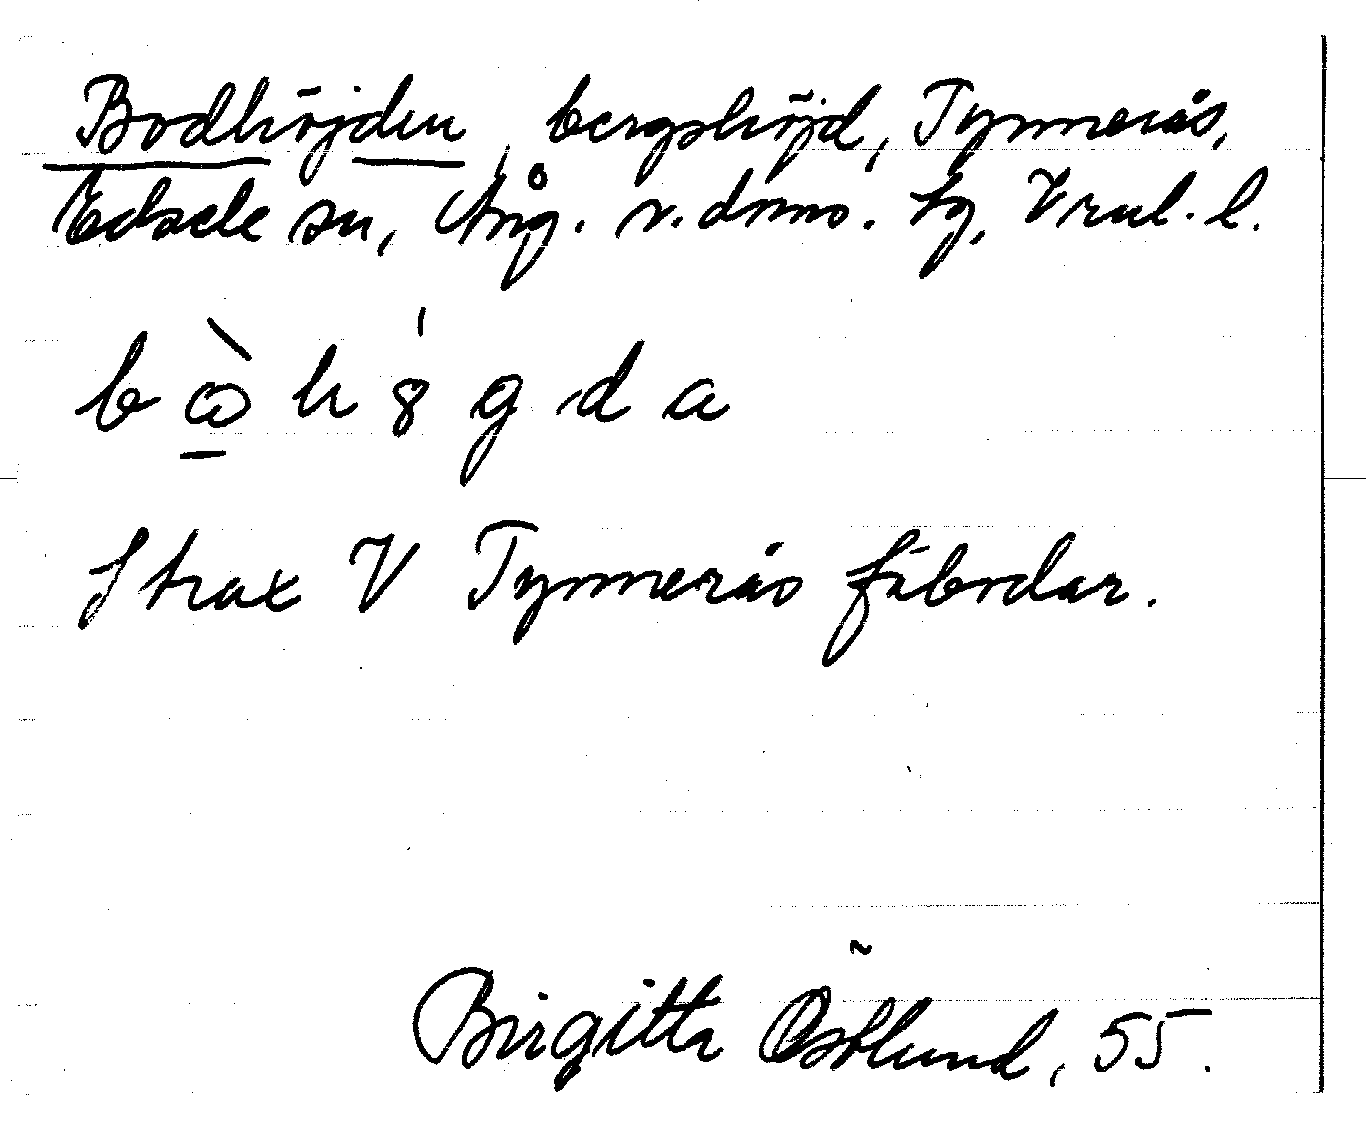 Bodhöjden, bergshöjd, Tymmerås,
Edsele sn, Ång. v. dmo. Lg, Vnl. l.
b ὼ̱ h 8́ g d a
Strax V Tymmerås fäbodar.
Birgitta Östlund, 55.